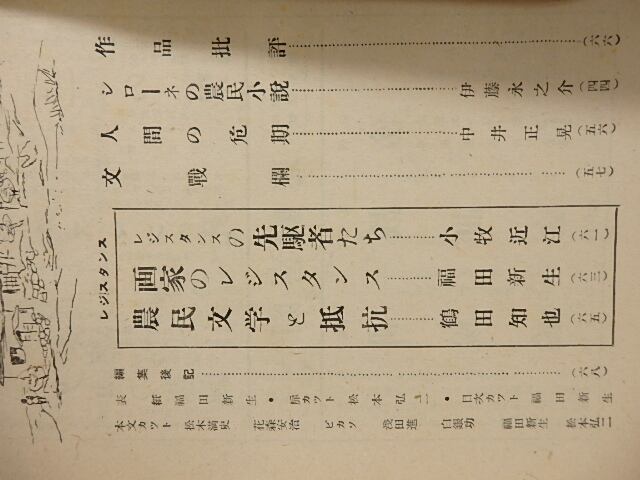 作品批評……(六六)
シローネの農民小説……伊藤永之介(四四)
人間の危期……中井正晃(五六)
文戰欄……(五七)
レジスタンス
レジスタンスの先駆者たち……小牧近江(六一)
画家のレジスタンス……福田新生(六三)
農民文学と抵抗……鶴田知也(六五)
編集後記……(六八)
表紙 福田新生・扉カット 松本弘二・目次カット 福田新生
本文カット 松木満史 花森安治 ピカソ 浅田進 白銀功 福田新生 松本弘二